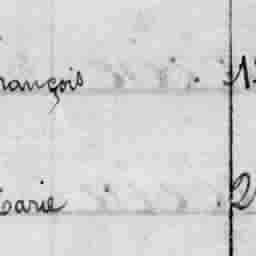 rançois
arie 2